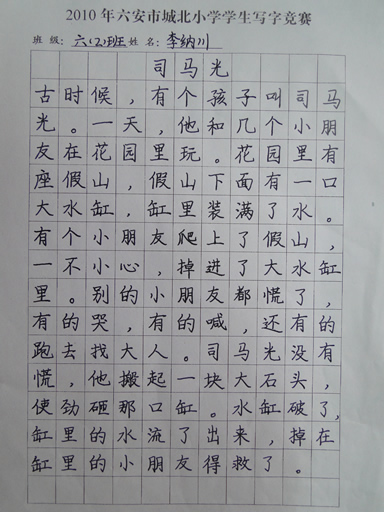 2010年六安市城北小学学生写字竞赛
班 级: 六(2)班 姓 名: 李纳川
司马光
古时候，有个孩子叫司马
光。一天，他和几个小朋
友在花园里玩。花园里有
座假山，假山下面有一口
大水缸，缸里装满了水。
有个小朋友爬上了假山，
一不小心，掉进了大水缸
里。别的小朋友都慌了，
有的哭，有的喊，还有的
跑去找大人。司马光没有
慌，他搬起一块大石头，
使劲砸那口缸。水缸破了，
缸里的水流了出来，掉在
缸里的小朋友得救了。